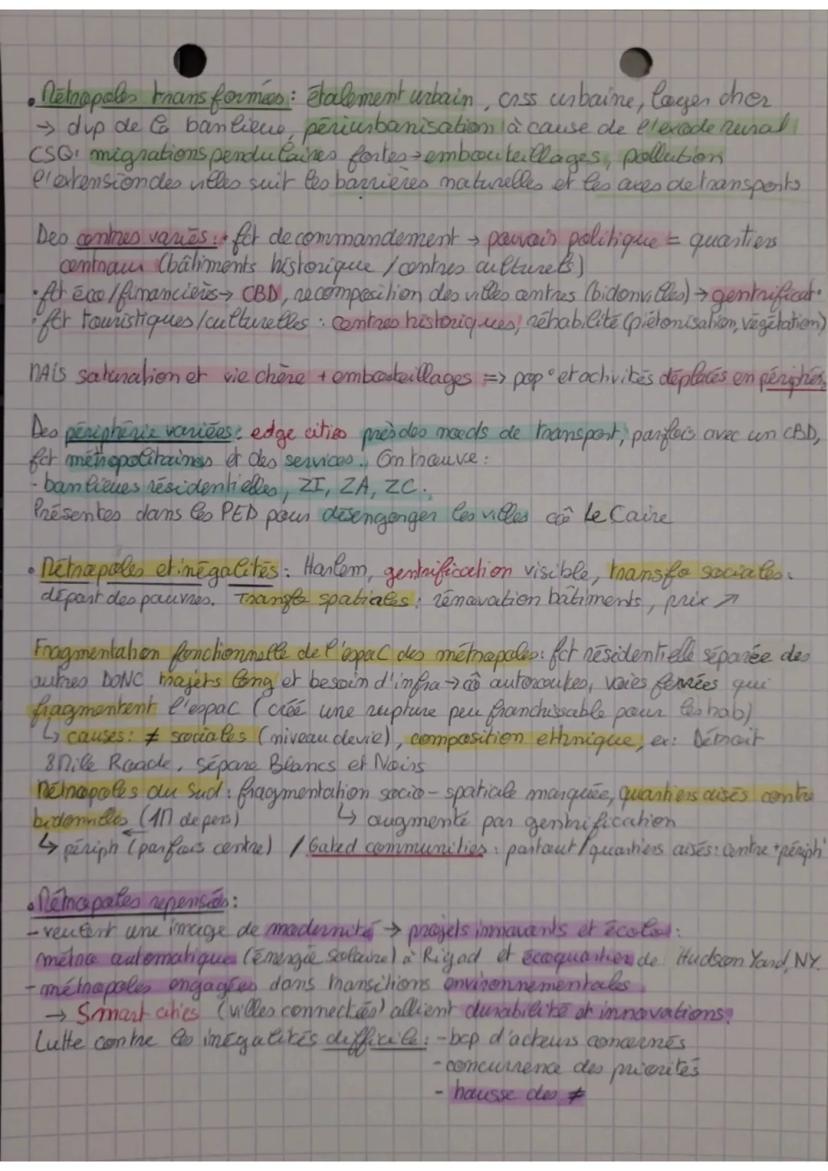 • Métropoles transformées : étalement urbain, crss urbaine, loyer cher
→ dvp de la banlieue, périurbanisation à cause de l'exode rural
CSQ: migrations pendulaires fortes → embouteillages, pollution
l'extension des villes suit les barrières naturelles et les axes de transports
Des centres variés : • fct de commandement → pouvoir politique = quartiers
centraux (bâtiments historique / centres culturels)
• fct éco/financières → CBD, recomposition des villes centres (bidonvilles) → gentrificat°
• fct touristiques/culturelles : centres historiques, réhabilité (piétonisation, végétation)
MAIS saturation et vie chère + embouteillages => pop° et activités déplacés en périphér.
Des périphérie variées : edge cities près des nœuds de transport, parfois avec un CBD,
fct métropolitaines et des services. On trouve :
- banlieues résidentielles, ZI, ZA, ZC.
Présentes dans les PED pour désengorger les villes cô Le Caire
• Métropoles et inégalités : Harlem, gentrification visible, transfo sociales :
départ des pauvres. Transfo spatiales : rénovation bâtiments, prix ↗
Fragmentation fonctionnelle de l'espac des métropoles : fct résidentielle séparée des
autres DONC trajets long et besoin d'infra → cô autoroutes, voies ferrées qui
fragmentent l'espac (créé une rupture peu franchissable pour les hab)
↳ causes : ≠ sociales (niveau de vie), composition ethnique, ex: Détroit
8 Mile Roade, sépare Blancs et Noirs
Métropoles du Sud : fragmentation socio-spatiale marquée, quartiers aisés contre
bidonvilles (1M de pers) ↳ augmenté par gentrification
↳ périph (parfois centre) / Gated communities : partout / quartiers aisés : centre + périph
• Métropoles repensées :
- veulent une image de modernité → projets innovants et écolos :
métro automatique (énergie solaire) à Riyad et écoquartier de Hudson Yard, NY.
- métropoles engagées dans transitions environnementales
→ Smart cities (villes connectées) allient durabilité et innovations.
Lutte contre les inégalités difficile : - bcp d'acteurs concernés
- concurrence des priorités
- hausse des ≠